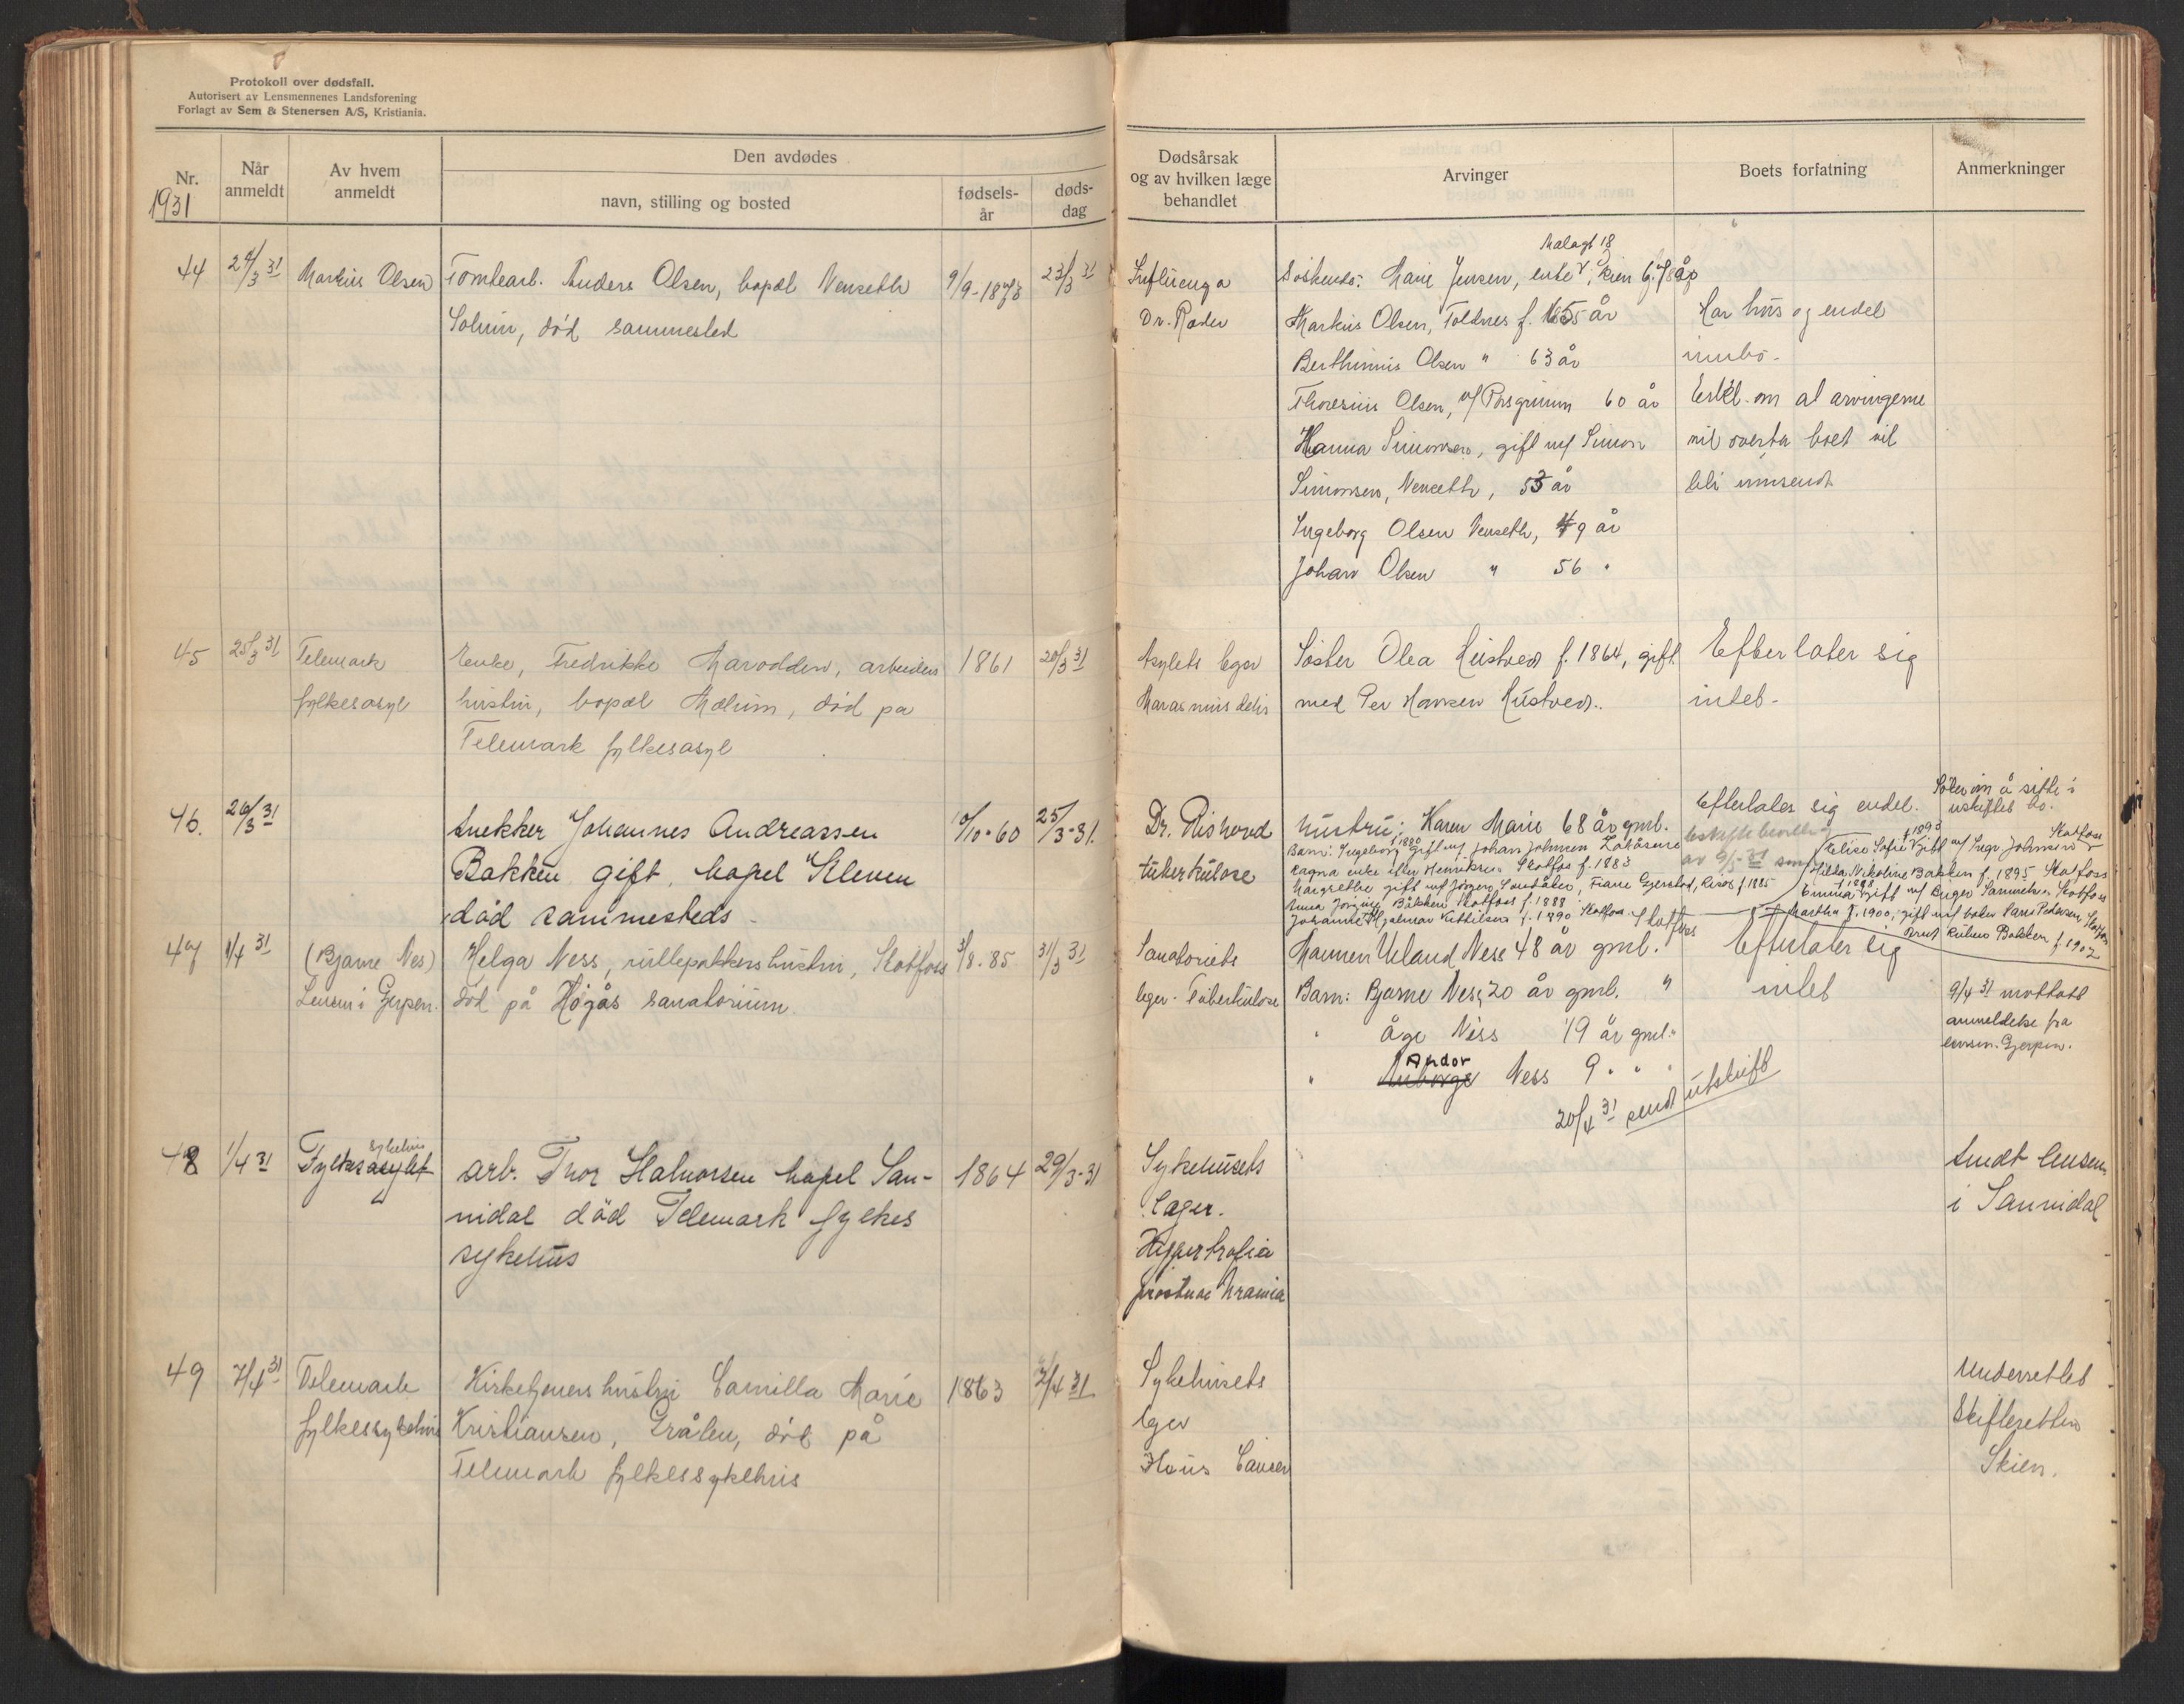 Protokoll over dødsfall.
Autorisert av Lensmennenes Landsforening
Forlagt av Sem & Stenersen A/S, Kristiania.
Nr.
1931
Når
anmeldt
Av hvem
anmeldt
Den avdødes
navn, stilling og bosted
fødsels-
år
døds-
dag
Dødsårsak
og av hvilken læge
behandlet
Arvinger
Boets forfatning
Anmerkninger
44
24/3 31
Markus Olsen
Tomtearb. Anders Olsen, bopæl Venseth
Solum, død sammested
9/9-1873
23/3 31
Influenza
Dr. Røder
Søskende: Marie Jensen, enke, Skien
Markus Olsen, Toldnes 65 år
Berthinius Olsen " 63 år
Thoresius Olsen, v/ Porsgrunn 60 år
Hanna Simonsen, gift m/ Simon
Simonsen, Venseth, 53 år
Ingeborg Olsen Venseth, 49 år
Johan Olsen " 56 "
Har hus og endel
innbo.
Erkl. om at arvingerne
vil overta boet vil
bli innsendt
45
25/3 31
Telemark
fylkesasyl
Enke, Fredrikke Marodden, arbeiders
hustru, bopæl Mælum, død på
Telemark fylkesasyl
1861
20/3 31
Asylets leger
Søster Olea Hustved f. 1864, gift
med Per Hansen Hustved.
Efterlater sig
intet.
46.
26/3 31
Snekker Johannes Andreassen
Bakken gift, bopel Kleven
død sammesteds.
10/10-60
25/3-31.
Dr. Rishovd
tuberkulose
hustru: Karen Marie 68 år gml.
Barn: Ingeborg f. 1880 gift m/ Johan Johnsen
Ragna enke efter Henriksen Skotfos f. 1883
Margrethe gift m/ Jørgen
Anna Jorgine Bakken Skotfoss f. 1888
Johanne Hjalmar Kittilsen f. 1890 Skotfoss
Efterlater sig endel.
Søker om å sitte i
uskiftet bo.
Elise Sofie gift m/ Johnsen Skotfoss
Hilda Nikoline Bakken f. 1895 Skotfoss
Emma f. 1898 gift m/ Birger Samuelsen Skotfoss
Martha f. 1900, gift m/ Pedersen Skotfos
Bakken f. 1902
47
1/4 31
(Bjarne Nes)
Lensm i Gjerpen.
Helga Ness, rullepakkers hustru, Skotfoss
død på Høgås sanatorium.
3/8-85
31/3 31
Sanatoriets
leger. Tuberkulose
Mannen Uland Ness 48 år gml.
Barn: Bjarne Nes, 20 år gml. "
" Åge Ness 19 år gml. "
" Andor Ness 9 " " "
20/4 31 sendt utskrift
Efterlater sig
intet
9/4 31 mottatt
anmeldelse fra
lensm. Gjerpen.
48
1/4 31
sykehus
Fylkesasylet
arb. Thor Halvorsen bopel San-
nidal død Telemark fylkes
sykehus
1864
29/3-31
Sykehusets
Læger.
Hypertrofia
prostatae Uramia
Sendt lensm.
i Sannidal
49
7/4 31
Telemark
fylkessykehus
Kirketjeners hustru Camilla Marie
Kristiansen, Gråten, død på
Telemark fylkessykehus
1863
2/4 31
Sykehusets
leger
Cancer
Underrettet
Skifteretten
Skien.